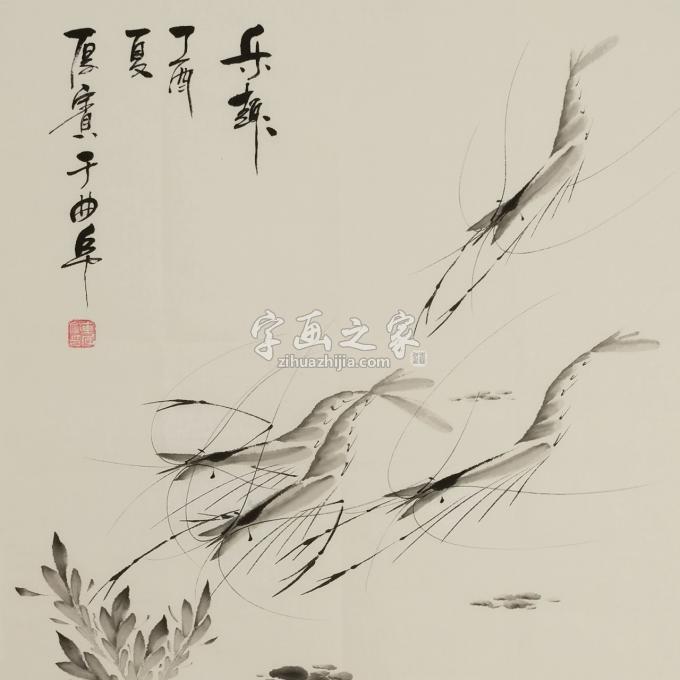 乐趣
丁酉
夏
厚賓于曲阜
字画之家
zihuazhijia.com